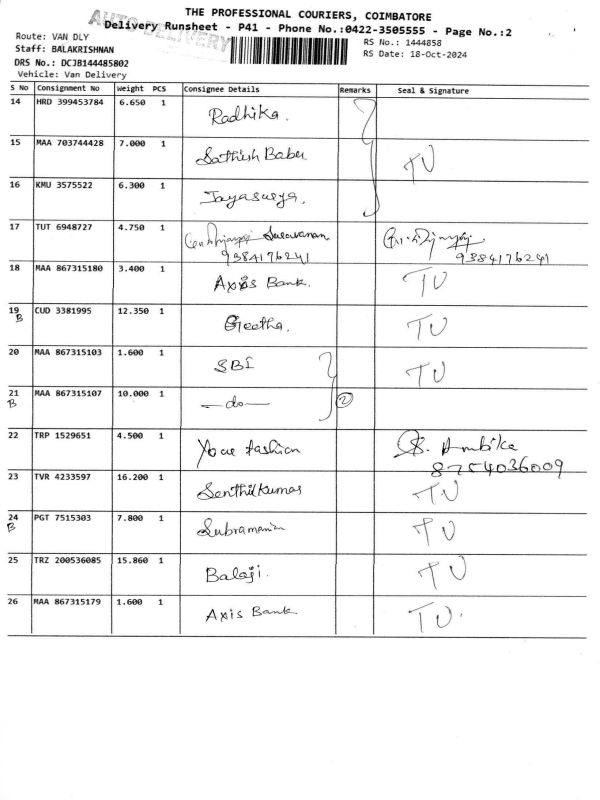 THE PROFESSIONAL COURIERS, COIMBATORE
AUTO DELIVERY
Delivery Runsheet - P41 - Phone No.:0422-3505555 - Page No.:2
Route: VAN DLY
RS No.: 1444858
Staff: BALAKRISHNAN
RS Date: 18-Oct-2024
DRS No.: DCJB144485802
Vehicle: Van Delivery
S No Consignment No Weight PCS Consignee Details Remarks Seal & Signature
14 HRD 399453784 6.650 1 Radhika.
15 MAA 703744428 7.000 1 Sathish Babu TU
16 KMU 3575522 6.300 1 Jayasurya.
17 TUT 6948727 4.750 1 Saravanan
9384176241 9384176241
18 MAA 867315180 3.400 1 Axis Bank. TU
19 B CUD 3381995 12.350 1 Geetha. TU
20 MAA 867315103 1.600 1 SBI TU
21 B MAA 867315107 10.000 1 —do— 2
22 TRP 1529651 4.500 1 fashion S. Ambika
8754036009
23 TVR 4233597 16.200 1 Senthilkumar TU
24 B PGT 7515303 7.800 1 Subramanian TU
25 TRZ 200536085 15.860 1 Balaji. TU
26 MAA 867315179 1.600 1 Axis Bank TU.